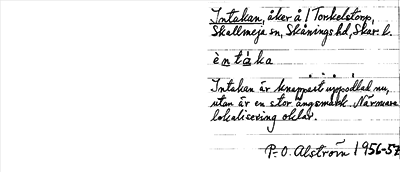 Intakan, åker å 1 Torkelstorp,
Skallmeja sn, Skånings hd, Skar. l.
èntáka
Intakan är knappast uppodlad nu,
utan är en stor ängsmark. Närmare
lokalisering oklar.
P.-O. Alström 1956-57